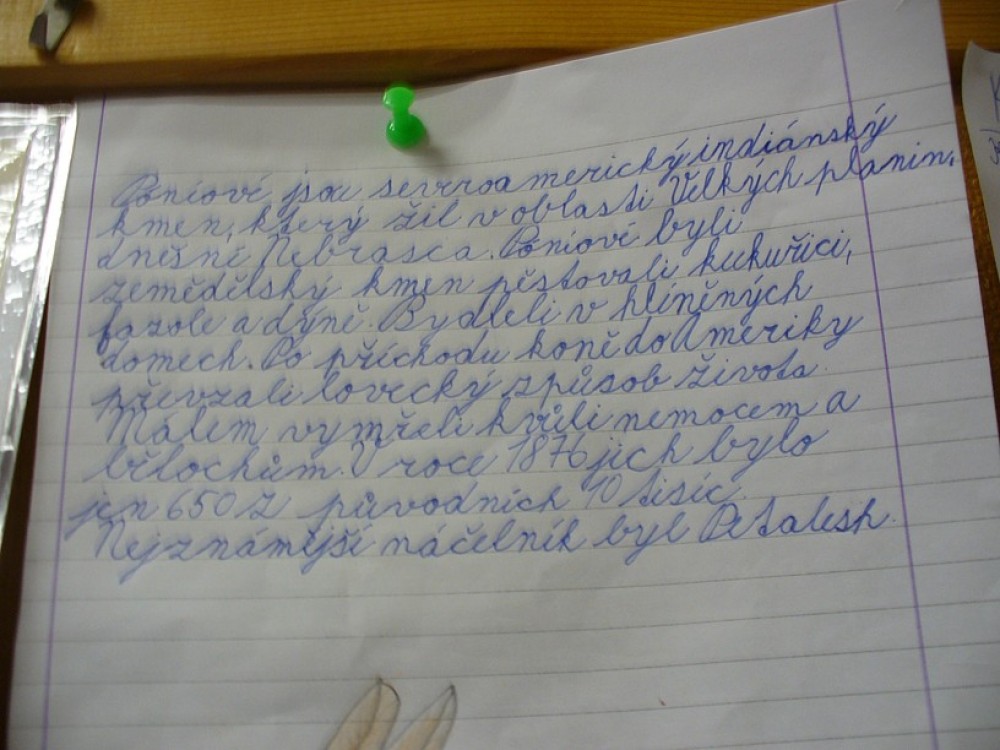 Póniové jsou severoamerický indiánský
kmen, který žil v oblasti Velkých planin,
dnešní Nebrasca. Póniové byli
zemědělský kmen pěstovali kukuřici,
fazole a dýně. Bydleli v hliněných
domech. Po příchodu koně do Ameriky
převzali lovecký způsob života.
Málem vymřeli kvůli nemocem a
bělochům. V roce 1876 jich bylo
jen 650 z původních 10 tisíc.
Nejznámější náčelník byl Petalesh.